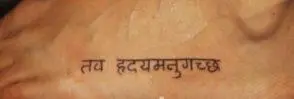 तव हृदयमनुगच्छ